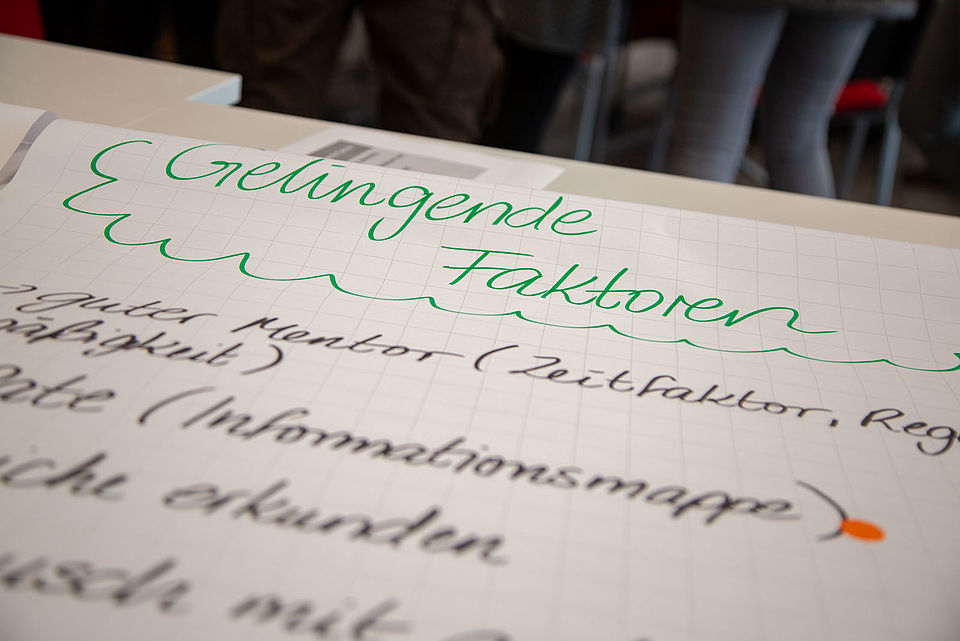 Gelingende
Faktoren
→ guter Mentor (Zeitfaktor, Reg
mäßigkeit)
(Informationsmappe)
erkunden
usch mit